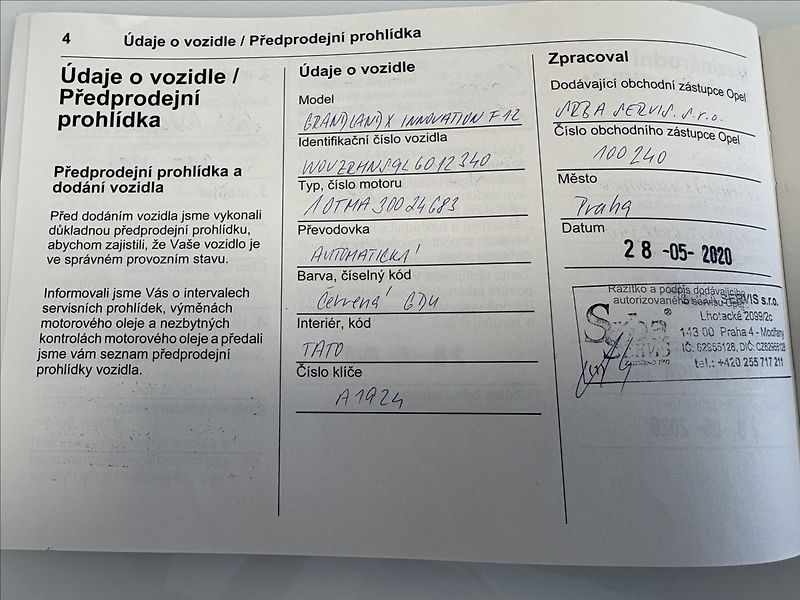 4 Údaje o vozidle / Předprodejní prohlídka
Údaje o vozidle /
Předprodejní
prohlídka
Předprodejní prohlídka a
dodání vozidla
Před dodáním vozidla jsme vykonali
důkladnou předprodejní prohlídku,
abychom zajistili, že Vaše vozidlo je
ve správném provozním stavu.
Informovali jsme Vás o intervalech
servisních prohlídek, výměnách
motorového oleje a nezbytných
kontrolách motorového oleje a předali
jsme vám seznam předprodejní
prohlídky vozidla.
Údaje o vozidle
Model
GRANDLAND X INNOVATION F 12
Identifikační číslo vozidla
W0VZRHNS9L6012340
Typ, číslo motoru
10TMA 30024683
Převodovka
AUTOMATICKÁ
Barva, číselný kód
Červená GDU
Interiér, kód
TATO
Číslo klíče
A1924
Zpracoval
Dodávající obchodní zástupce Opel
SRBA SERVIS s.r.o.
Číslo obchodního zástupce Opel
100240
Město
Praha
Datum
28 -05- 2020
Razítko a podpis dodávajícího
autorizovaného servisu Opel
SERVIS s.r.o.
Lhotacká 2099/2c
143 00 Praha 4 - Modřany
IČ: 62956128, DIČ:
tel.: +420 255 717 211
Srba
SERVIS